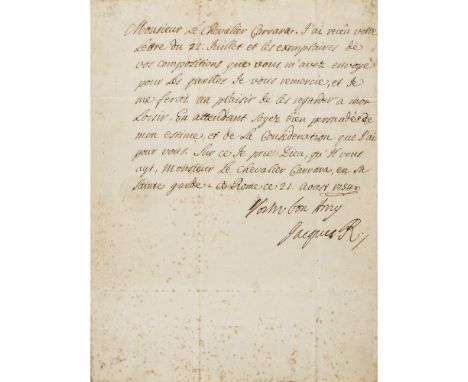 Monsieur Le Chevalier Carrara. J'ai recêu votre
Lettre du 22. Juillet et les exemplaires de
vos compositions que vous m'avez envoyé
pour Les quelles Je vous remercie, et Je
me feray un plaisir de les regarder a mon
Loisir. En attendant Soyez bien persuadé de
mon estime, et de La Consideration que J'ai
pour vous. Sur ce Je prie Dieu, qu'Il vous
ayt, Monsieur Le Chevalier Carrara, en sa
Sainte garde. A Rome ce 21. Aoust
Votre bon Amy
Jacques R.